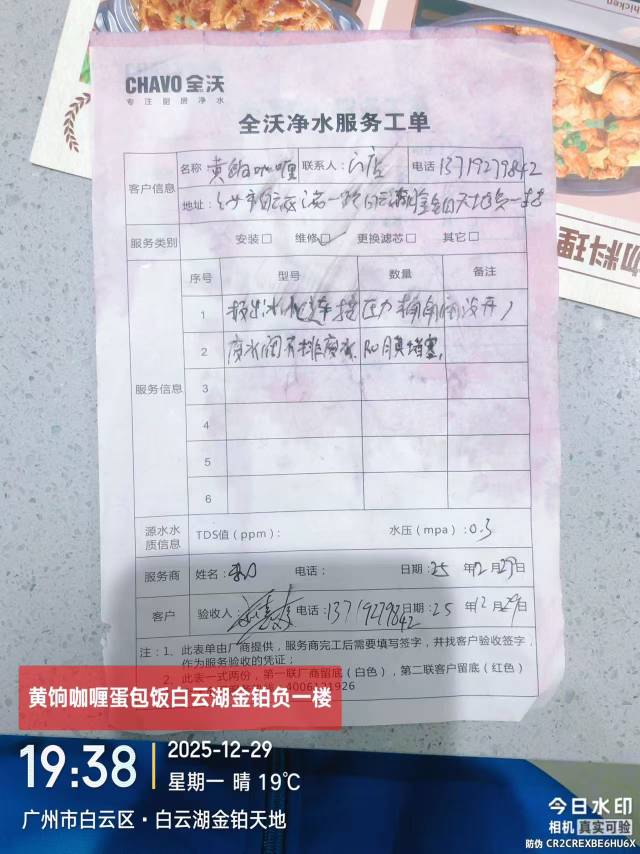 chicken
CHAVO 全沃
专注厨房净水
全沃净水服务工单
客户信息 名称 黄饷咖喱 联系人：门店 电话 13719279842
地址：
服务类别 安装□ 维修☑ 更换滤芯□ 其它□
服务信息 序号 型号 数量 备注
1 压力桶
2 废水阀不排废水，RO膜堵塞，
3
4
5
6
源水水质信息 TDS值（ppm）： 水压（mpa）：0.3
服务商 姓名： 电话： 日期：25 年12月29日
客户 验收人： 电话：13719279842 日期：25 年12月29日
注：1、此表单由厂商提供，服务商完工后需要填写签字，并找客户验收签字，
作为服务验收的凭证；
2、此表一式两份，第一联厂商留底（白色），第二联客户留底（红色）
4006121926
料理
黄饷咖喱蛋包饭白云湖金铂负一楼
19:38
2025-12-29
星期一 晴 19℃
广州市白云区·白云湖金铂天地
今日水印
相机 真实可验
防伪 CR2CREXBE6HU6X